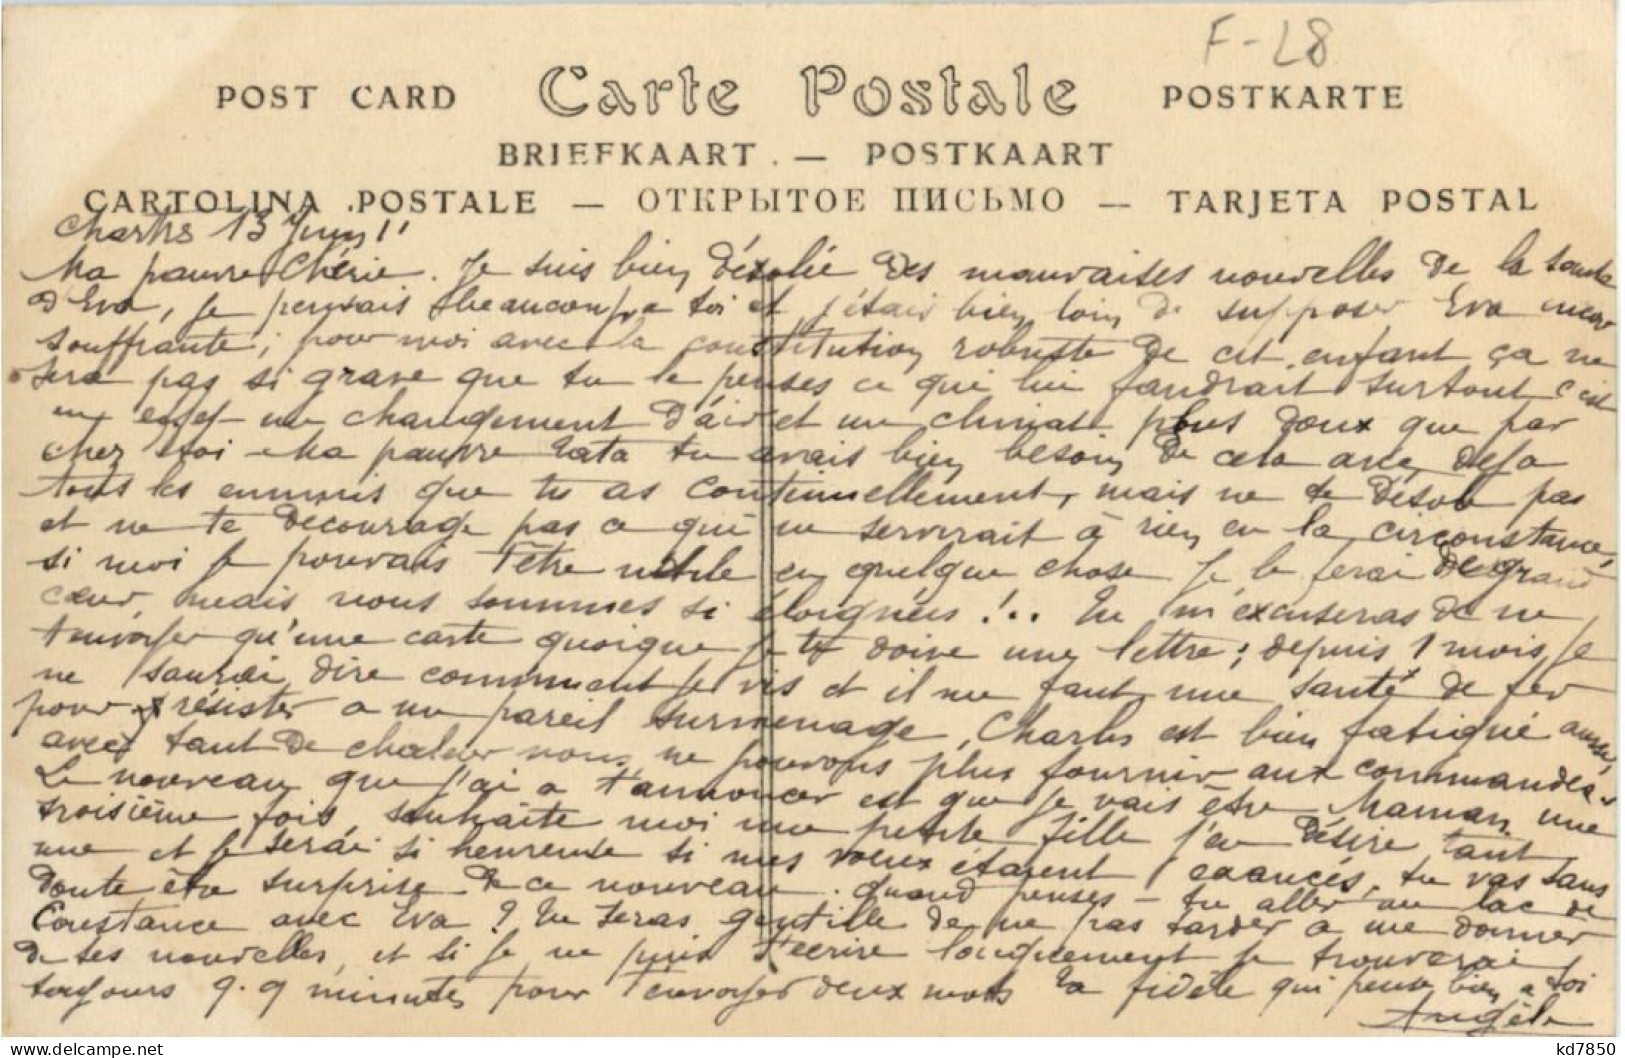 F-28
POST CARD Carte Postale POSTKARTE
BRIEFKAART. — POSTKAART
CARTOLINA POSTALE — ОТКРЫТОЕ ПИСЬМО — TARJETA POSTAL
13 Juin 11
Ma pauvre Chérie. Je suis bien désolée des mauvaises nouvelles de la santé
d'Eva, je pensais beaucoup a toi et j'étais bien loin de supposer Eva
souffrante; pour moi avec la constitution robuste de cet enfant ça ne
sera pas si grave que tu le penses ce qui lui faudrait surtout c'est
en effet un changement d'air et un climat plus doux que par
chez toi. Ma pauvre Tata tu avais bien besoin de cela avec deja
tous les ennuis que tu as continuellement, mais ne te désole pas
et ne te decourage pas ce qui ne servirait à rien en la circonstance,
si moi je pouvais t'être utile en quelque chose je le ferai de grand
cœur, mais nous sommes si éloignées!.. Tu m'excuseras de ne
t'envoyer qu'une carte quoique je te doive une lettre; depuis 1 mois je
ne saurai dire comment je vis et il me faut une santé de fer
pour résister a un pareil surmenage, Charles est bien fatigué aussi,
avec tant de chaleur nous ne pouvons plus fournir aux commandes.
Le nouveau que j'ai a t'annoncer est que je vais être Maman une
troisième fois, souhaite moi une petite fille j'en désire tant
une et je serai si heureuse si mes vœux étaient exaucés, tu vas sans
doute être surprise de ce nouveau. quand penses-tu aller au lac de
Constance avec Eva? Tu seras gentille de ne pas tarder a me donner
de tes nouvelles, et si je ne puis t'écrire longuement je trouverai
toujours q.q minutes pour t'envoyer deux mots Ta fidèle qui pense bien a toi
Angèle
kd7850